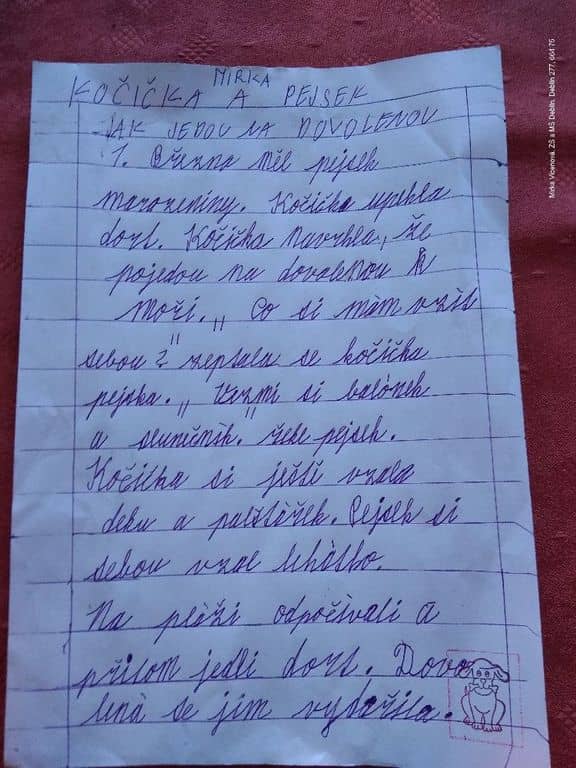 MIRKA
KOČIČKA A PEJSEK
JAK JEDOU NA DOVOLENOU
1. Března měl pejsek
narozeniny. Kočička upekla
dort. Kočička navrhla, že
pojedou na dovolenou k
moři. „Co si mám vzít
sebou?" zeptala se kočička
pejska. „Vezmi si balónek
a slunečník." řekl pejsek.
Kočička si ještě vzala
deku a polštářek. Pejsek si
sebou vzal lehátko.
Na pláži odpočívali a
přitom jedli dort. Dovo
lená se jim vydařila.
Mirka Vicenová, ZŠ a MŠ Deblín, Deblín 277, 664 75